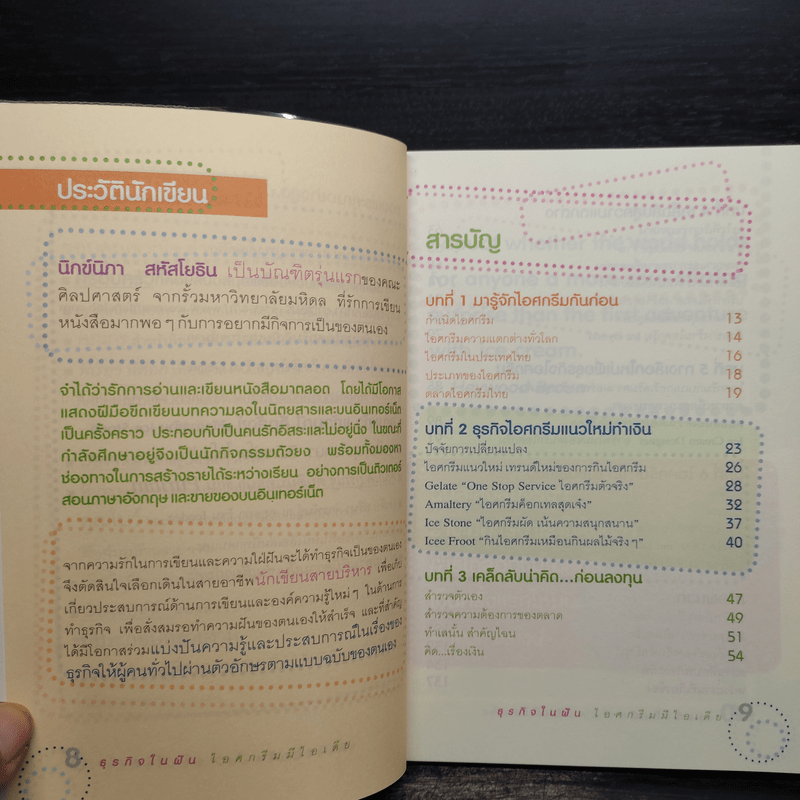 ประวัตินักเขียน
นิกข์นิภา สหัสโยธิน เป็นบัณฑิตรุ่นแรกของคณะ
ศิลปศาสตร์ จากรั้วมหาวิทยาลัยมหิดล ที่รักการเขียน
หนังสือมากพอๆกับการอยากมีกิจการเป็นของตนเอง
จำได้ว่ารักการอ่านและเขียนหนังสือมาตลอด โดยได้มีโอกาส
แสดงฝีมือขีดเขียนบทความลงในนิตยสารและบนอินเทอร์เน็ต
เป็นครั้งคราว ประกอบกับเป็นคนรักอิสระและไม่อยู่นิ่ง ในขณะที่
กำลังศึกษาอยู่จึงเป็นนักกิจกรรมตัวยง พร้อมทั้งมองหา
ช่องทางในการสร้างรายได้ระหว่างเรียน อย่างการเป็นติวเตอร์
สอนภาษาอังกฤษ และขายของบนอินเทอร์เน็ต
จากความรักในการเขียนและความใฝ่ฝันจะได้ทำธุรกิจเป็นของตนเอง
จึงตัดสินใจเลือกเดินในสายอาชีพนักเขียนสายบริหาร เพื่อเก็บ
เกี่ยวประสบการณ์ด้านการเขียนและองค์ความรู้ใหม่ๆ ในด้านการ
ทำธุรกิจ เพื่อสั่งสมรอทำความฝันของตนเองให้สำเร็จ และที่สำคัญ
ได้มีโอกาสร่วมแบ่งปันความรู้และประสบการณ์ในเรื่องของ
ธุรกิจให้ผู้คนทั่วไปผ่านตัวอักษรตามแบบฉบับของตนเอง
8 ธุรกิจในฝัน ไอศกรีมมีไอเดีย
สารบัญ
บทที่ 1 มารู้จักไอศกรีมกันก่อน
กำเนิดไอศกรีม 13
ไอศกรีมความแตกต่างทั่วโลก 14
ไอศกรีมในประเทศไทย 16
ประเภทของไอศกรีม 18
ตลาดไอศกรีมไทย 19
บทที่ 2 ธุรกิจไอศกรีมแนวใหม่ทำเงิน
ปัจจัยการเปลี่ยนแปลง 23
ไอศกรีมแนวใหม่ เทรนด์ใหม่ของการกินไอศกรีม 26
Gelate “One Stop Service ไอศกรีมตัวจริง” 28
Amaltery “ไอศกรีมค็อกเทลสุดเจ๋ง” 32
Ice Stone “ไอศกรีมผัด เน้นความสนุกสนาน” 37
Icee Froot “กินไอศกรีมเหมือนกินผลไม้จริงๆ” 40
บทที่ 3 เคล็ดลับน่าคิด...ก่อนลงทุน
สำรวจตัวเอง 47
สำรวจความต้องการของตลาด 49
ทำเลนั้น สำคัญไฉน 51
คิด...เรื่องเงิน 54
ธุรกิจในฝัน ไอศกรีมมีไอเดีย 9